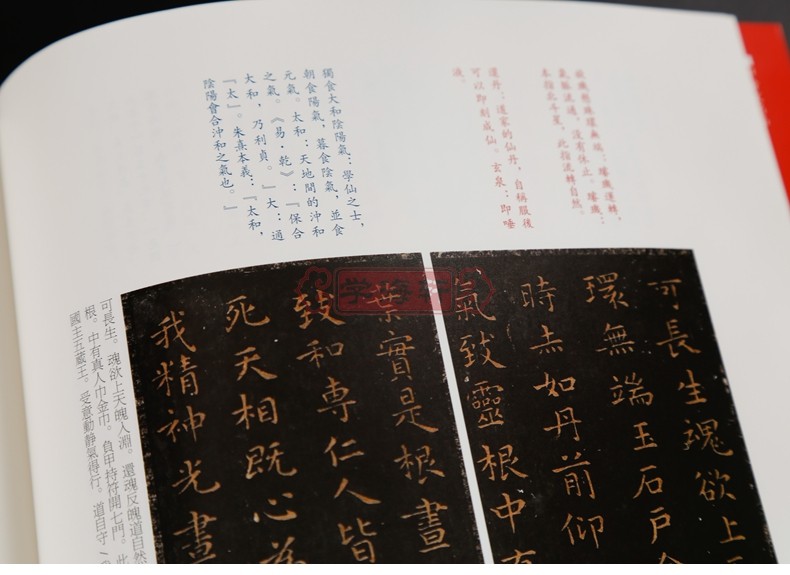 旋璣懸珠環無端：璿璣運轉，
氣脈流通，沒有休止。璿璣：
本指北斗星，此指流轉自然。
還丹：道家的仙丹，自稱服後
可以即刻成仙。玄泉：即唾
液。
獨食大和陰陽氣：學仙之士，
朝食陽氣，暮食陰氣，並食
元氣。太和：天地間的沖和
之氣。《易·乾》：『保合
大和，乃利貞。』大：通
『太』。朱熹本義：『太和，
陰陽會合沖和之氣也。』
可長生魂欲上
環無端玉石戶金
時赤如丹前仰
氣致靈根中有
葉實是根晝
致和専仁人皆
死天相既心為
我精神光晝
可長生。魂欲上天魄入淵。還魂反魄道自然
根。中有真人巾金巾。負甲持符開七門。此
國主五藏王。受意動靜氣得行。道自守